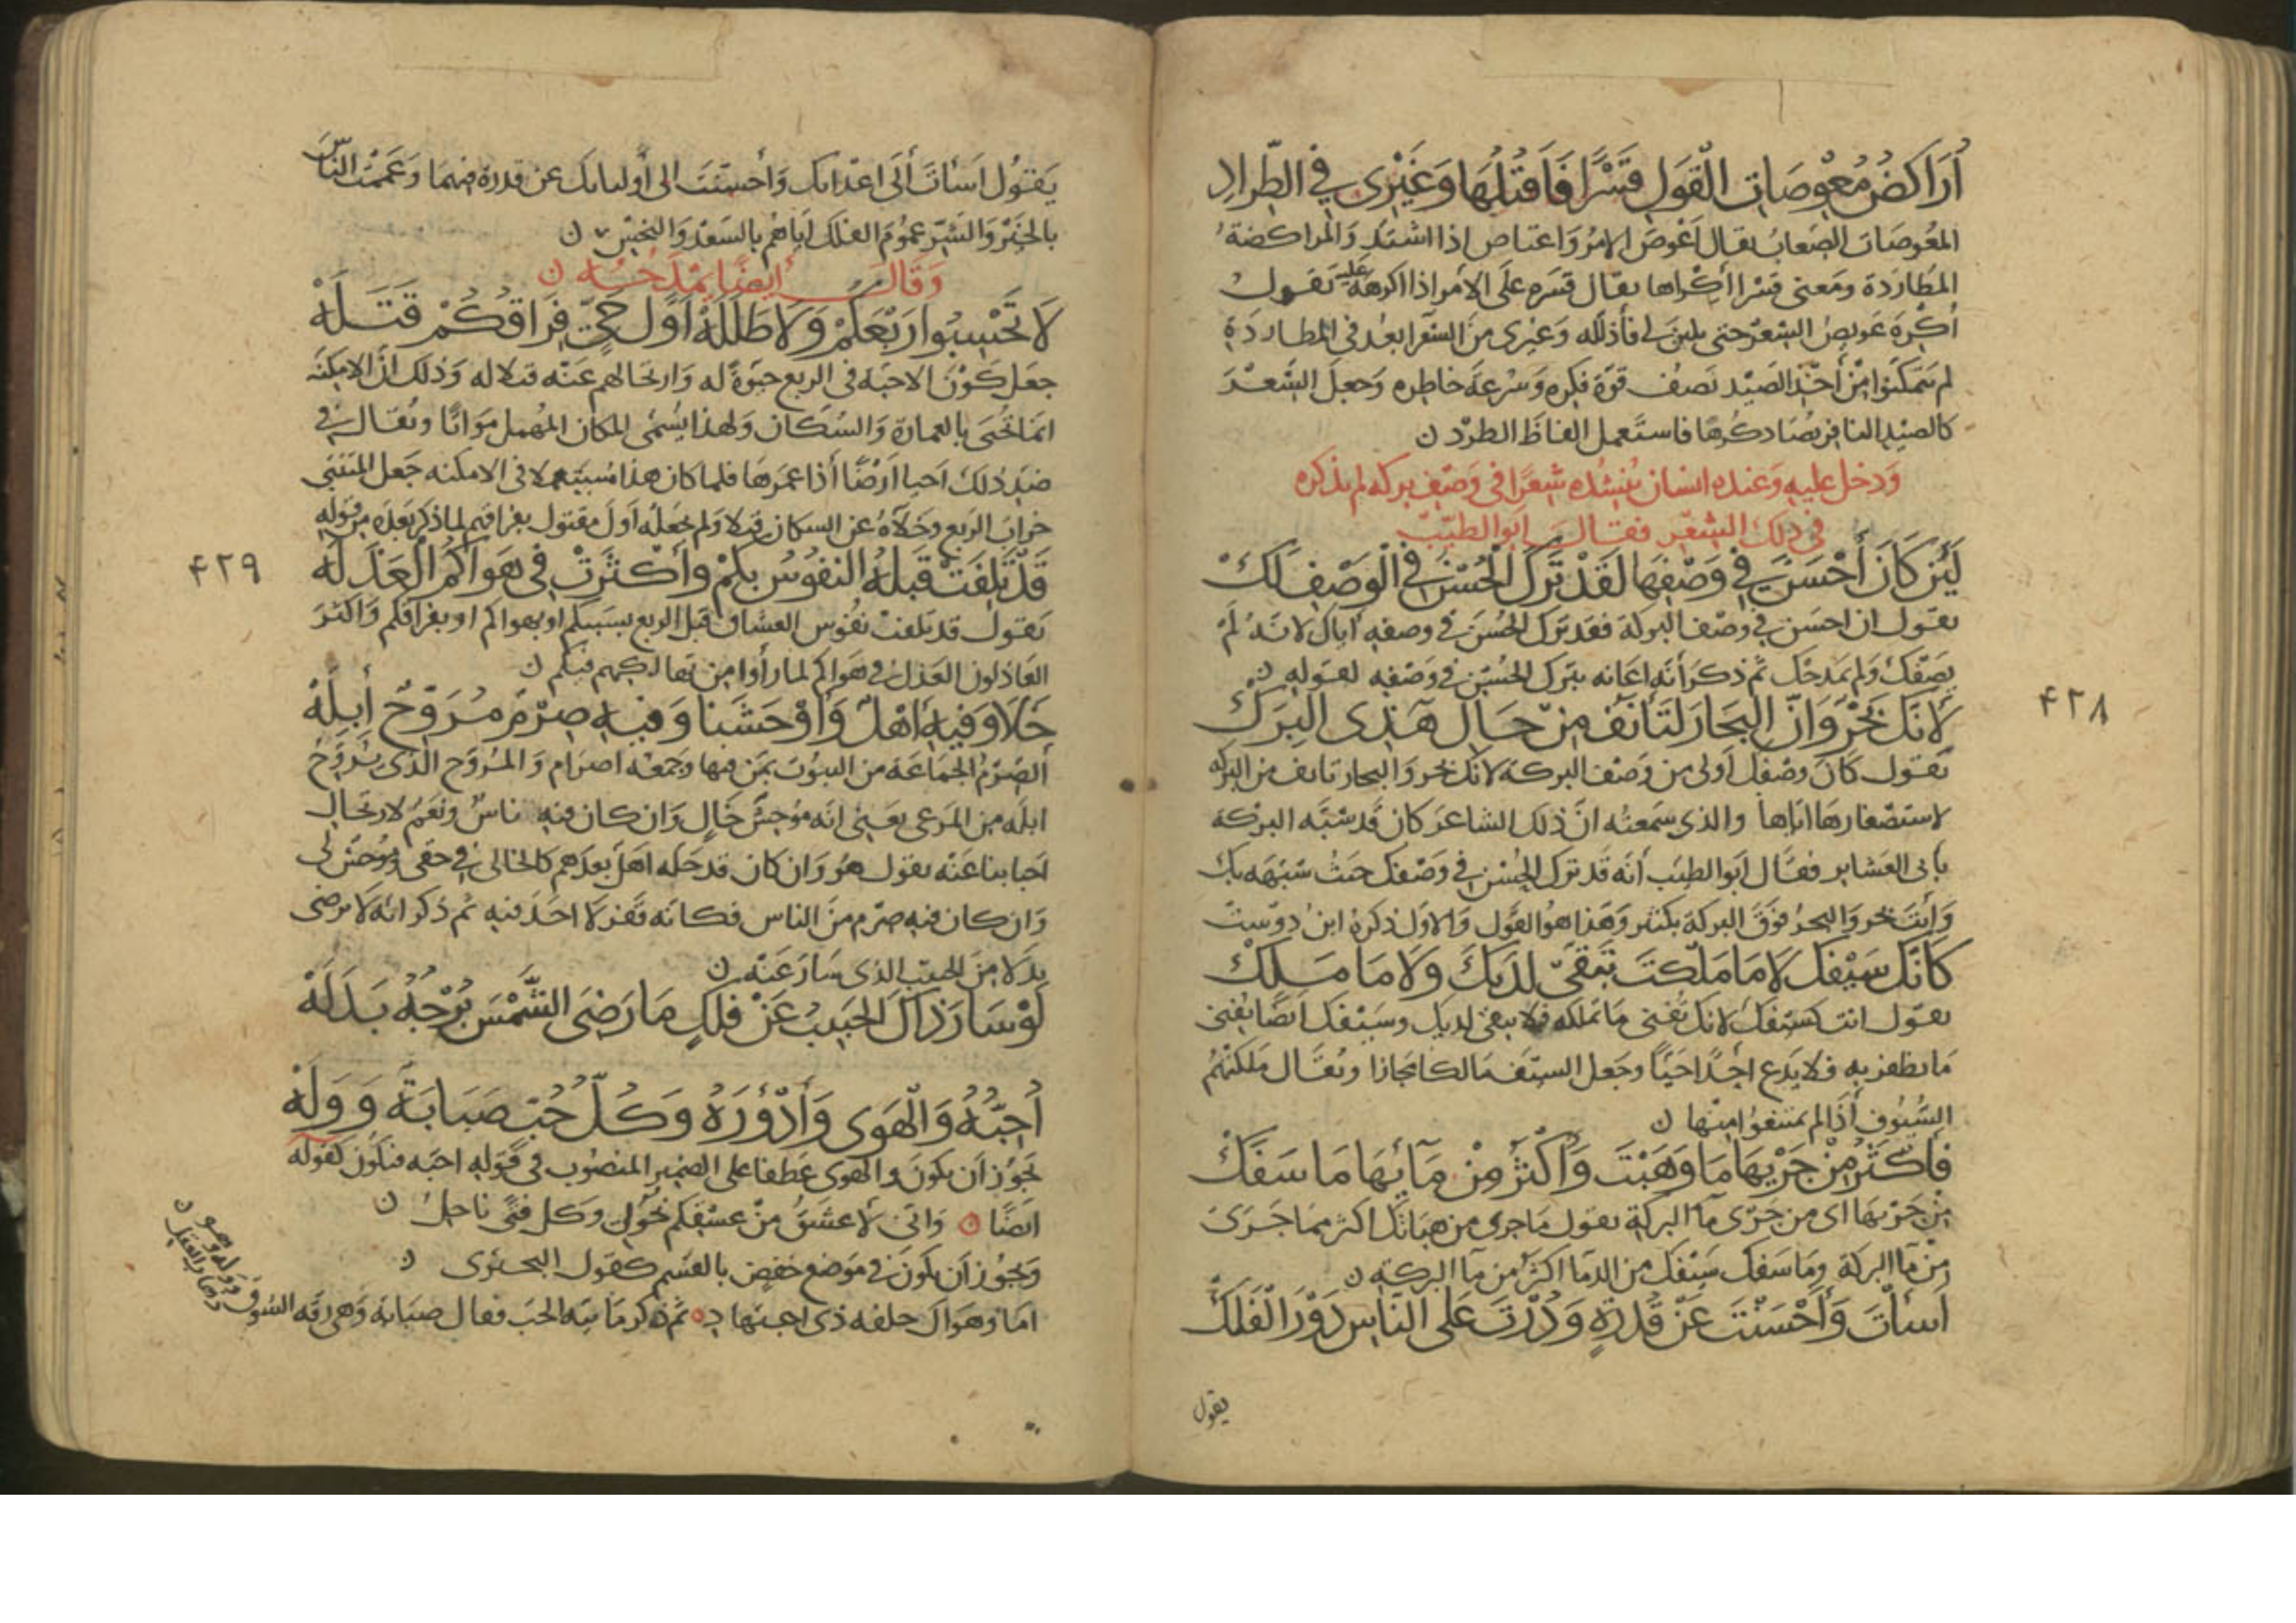 أراكض معوصات القول قسرا فأقتلها وغيري في الطراد
المعوصات الصعاب يقال اعوص الامر واعتاص اذا اشتد والمراكضة
المطاردة ومعنى قسرا اكراها يقال قسره على الامر اذا اكرهه عليه يقول
أكره عويص الشعر حتى يلين لي فأذلله وغيري من الشعرا بعد في المطاردة
لم يتمكنوا من أخذ الصيد يصف قوة فكره وسرعة خاطره وجعل الشعر
كالصيد النافر يصاد كرها فاستعمل الفاظ الطرد ن
ودخل عليه وعنده انسان ينشده شعرا في وصف بركه لم يذكره
في ذلك الشعر فقال ابو الطيب
لئن كان أحسن في وصفها لقد ترك الحسن في الوصف لك
يقول ان احسن في وصف البركة فقد ترك الحسن في وصفه اياك لانه لم
يصفك ولم يمدحك ثم ذكر أنه اعانه بترك الحسن في وصفه لقوله ن
لانك بحر وان البحار لتأنف من حال هذي البرك
يقول كان وصفك أولى من وصف البركة لانك بحر والبحار تانف من البركه
لاستصغارها اياها والذي سمعته ان ذلك الشاعر كان قد شبه البركة
بأبي العشاير فقال ابو الطيب أنه قد ترك الحسن في وصفك حيث شبهه بك
وأنت بحر والبحر فوق البركة بكثير وهذا هو القول والاول ذكره ابن دوست
كأنك سيفك لا ما ملكت يبقى لديك ولا ما ملك
يقول انت كسيفك لانك تفني ما تملكه فلا يبقى لديك وسيفك ايضا يفني
ما يظفر به فلا يدع احدا حيا وجعل السيف مالكا مجازا ويقال ملكتهم
السيوف أذا لم يمتنعوا منها ن
فأكثر من جريها ما وهبت وأكثر من مآئها ما سفك
من جريها اى من جرى مآ البركة يقول ما جرى من هباتك اكثر مما جرى
من مآ البركة وما سفك سيفك من الدما اكثر من مآ البركة ن
أسأت وأحسنت عن قدرة ودرت على الناس دور الفلك
يقول
٤٢٨
يقول اسأت ألى اعدائك وأحسنت الى أوليائك عن قدرة فيهما وعممت الناس
بالخير والشر عموم الفلك اياهم بالسعد والنحس ن
وقال ايضا يمدحه ن
لا تحسبوا ربعكم ولا طلله أول حي فراقكم قتله
جعل كون الاحبة في الربع حيوة له وارتحالهم عنه قتلا له وذلك ان الامكنه
انما تحيى بالعمارة والسكان ولهذا يسمى المكان المهمل مواتا ويقال في
ضد ذلك احيا ارضا أذا عمرها فلما كان هذا مستعملا في الامكنه جعل المتنبي
خراب الربع وخلاه عن السكان قتلا ولم يجعله أول مقتول بفراقهم لما ذكر بعده من قوله
قد تلفت قبله النفوس بكم وأكثرت في هواكم العذله
يقول قد تلفت نفوس العشاق قبل الربع بسببكم او بهواكم او بفراقكم واكثر
العاذلون العذل في هواكم لما رأوا من تهالكهم فيكم ن
خلا وفيه أهل وأوحشنا وفيه صرم مروح أبله
ألصرم الجماعة من البيوت بمن فيها وجمعه اصرام والمروح الذي يروح
ابله من المرعى يعني انه موحش خال وان كان فيه ناس ونعم لارتحال
احبابنا عنه يقول هو وان كان قد حله اهل بعدهم كالخالي في حقي وموحش لي
وان كان فيه صرم من الناس فكأنه قفر لا احد فيه ثم ذكر انه لا يرضى
بدلا من الحبيب الذى سار عنه ن
لو سار ذاك الحبيب عن فلك ما رضي الشمس برجه بدله
أحبه والهوى وأدؤره وكل حب صبابة ووله
يجوز أن يكون والهوى عطفا على الضمير المنصوب في قوله احبه فيكون كقوله
ايضا ۞ واني لاعشق من عشقكم نحولي وكل فتى ناحل ن
ويجوز أن يكون في موضع خفض بالقسم كقول البحترى ن
اما وهواك حلفه ذى اجتهاد ۞ ثم ذكر ما سه الحب فقال صبابة وهي رقه الشوق
ووله وهو ذهاب العقل ن
٤٢٩